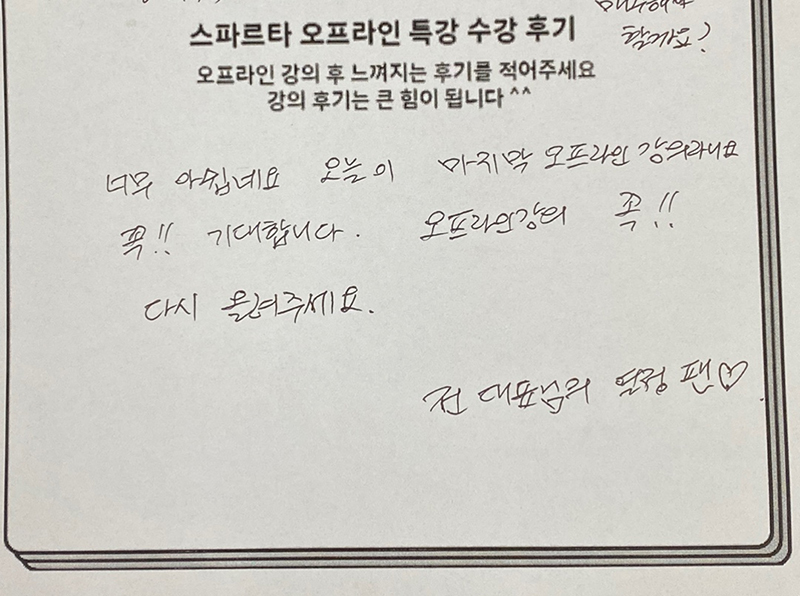 할까요?
스파르타 오프라인 특강 수강 후기
오프라인 강의 후 느껴지는 후기를 적어주세요
강의 후기는 큰 힘이 됩니다 ^^
너무 아쉽네요 오늘이 마지막 오프라인 강의라니요
꼭!! 기대합니다. 오프라인강의 꼭!!
다시 올려주세요.
전 대표님의 열정 팬♡.